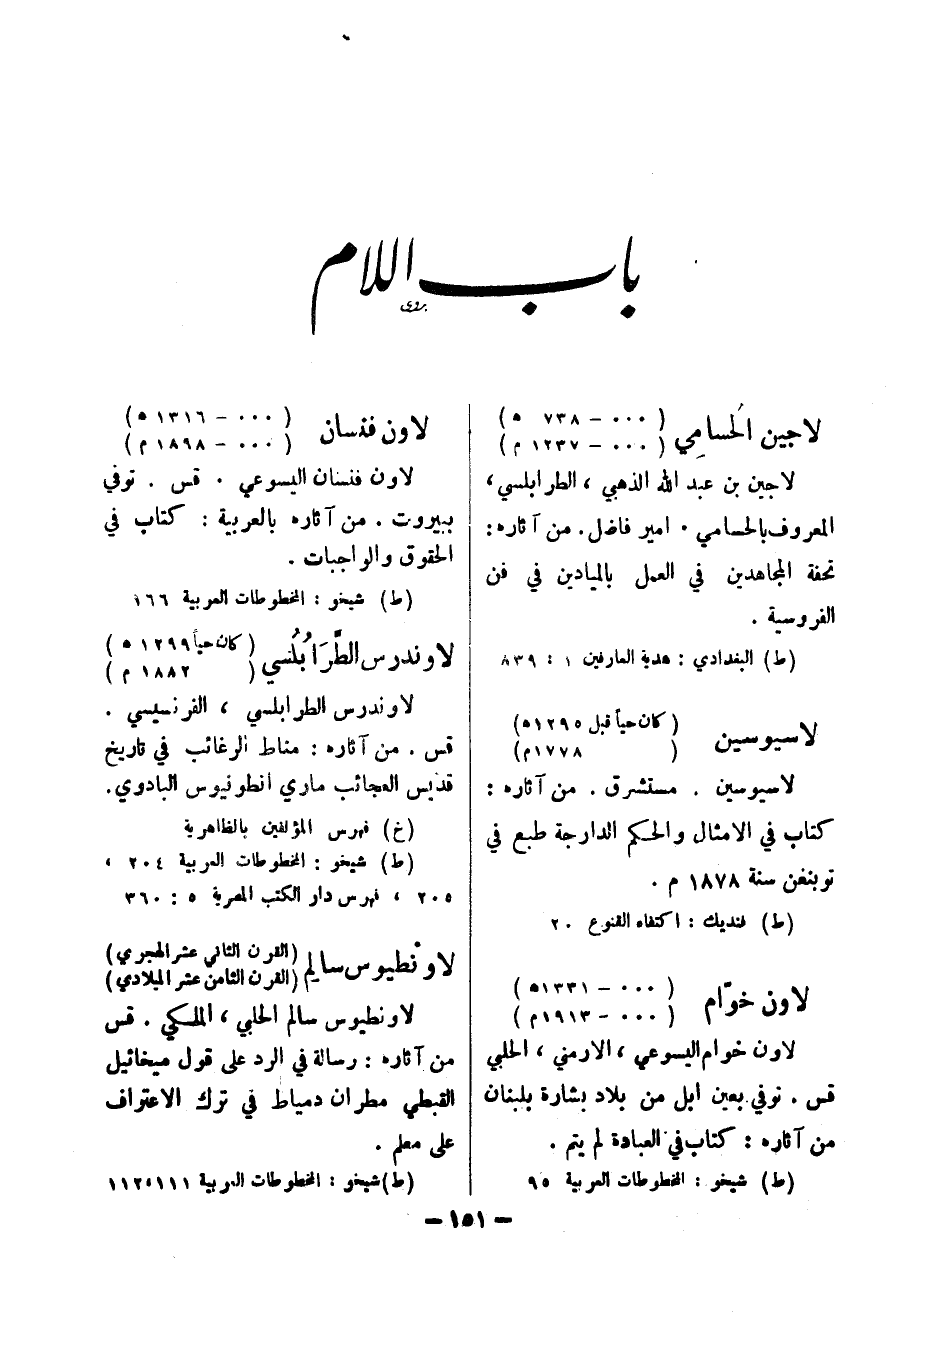 باب اللام
بدوي
لاجين الحُسامِي
( ٠٠٠ – ٧٣٨ ه )
( ٠٠٠ – ١٢٣٧ م )
لاجين بن عبد الله الذهبي ، الطرابلسي ،
المعروف بالحسامي . امير فاضل . من آثاره :
تحفة المجاهدين في العمل بالميادين في فن
الفروسية .
(ط) البغدادي : هدية العارفين ١ : ٨٣٩
لاسيوسين
( كان حياً قبل ١٢٩٥ ه )
( ١٧٧٨ م )
لاسيوسين . مستشرق . من آثاره :
كتاب في الامثال والحكم الدارجة طبع في
توبنغن سنة ١٨٧٨ م .
(ط) فنديك : اكتفاء القنوع ٢٠
لاون خوّام
( ٠٠٠ – ١٣٣١ ه )
( ٠٠٠ – ١٩١٣ م )
لاون خوام اليسوعي ، الارمني ، الحلبي
قس . توفي بعين ابل من بلاد بشارة بلبنان
من آثاره : كتاب في العبادة لم يتم .
(ط) شيخو : المخطوطات العربية ٩٥
لاون فنسان
( ٠٠٠ – ١٣١٦ ه )
( ٠٠٠ – ١٨٩٨ م )
لاون فنسان اليسوعي . قس . توفي
ببيروت . من آثاره بالعربية : كتاب في
الحقوق والواجبات .
(ط) شيخو : المخطوطات العربية ١٦٦
لاوندرس الطَّرَابُلُسي
( كان حياً ١٢٩٩ ه )
( ١٨٨٢ م )
لاوندرس الطرابلسي ، الفرنسيسي .
قس . من آثاره : مناط الرغائب في تاريخ
قديس العجائب ماري انطونيوس البادوي .
(خ) فهرس المؤلفين بالظاهرية
(ط) شيخو : المخطوطات العربية ٢٠٤ ،
٢٠٥ ، فهرس دار الكتب المصرية ٥ : ٣٦٠
لاونْطيوس سالِم
(القرن الثاني عشر الهجري)
(القرن الثامن عشر الميلادي)
لاونطيوس سالم الحلبي ، الملكي . قس
من آثاره : رسالة في الرد على قول ميخائيل
القبطي مطران دمياط في ترك الاعتراف
على معلم .
(ط) شيخو : المخطوطات العربية ١١١ ، ١١٢
– ١٥١ –